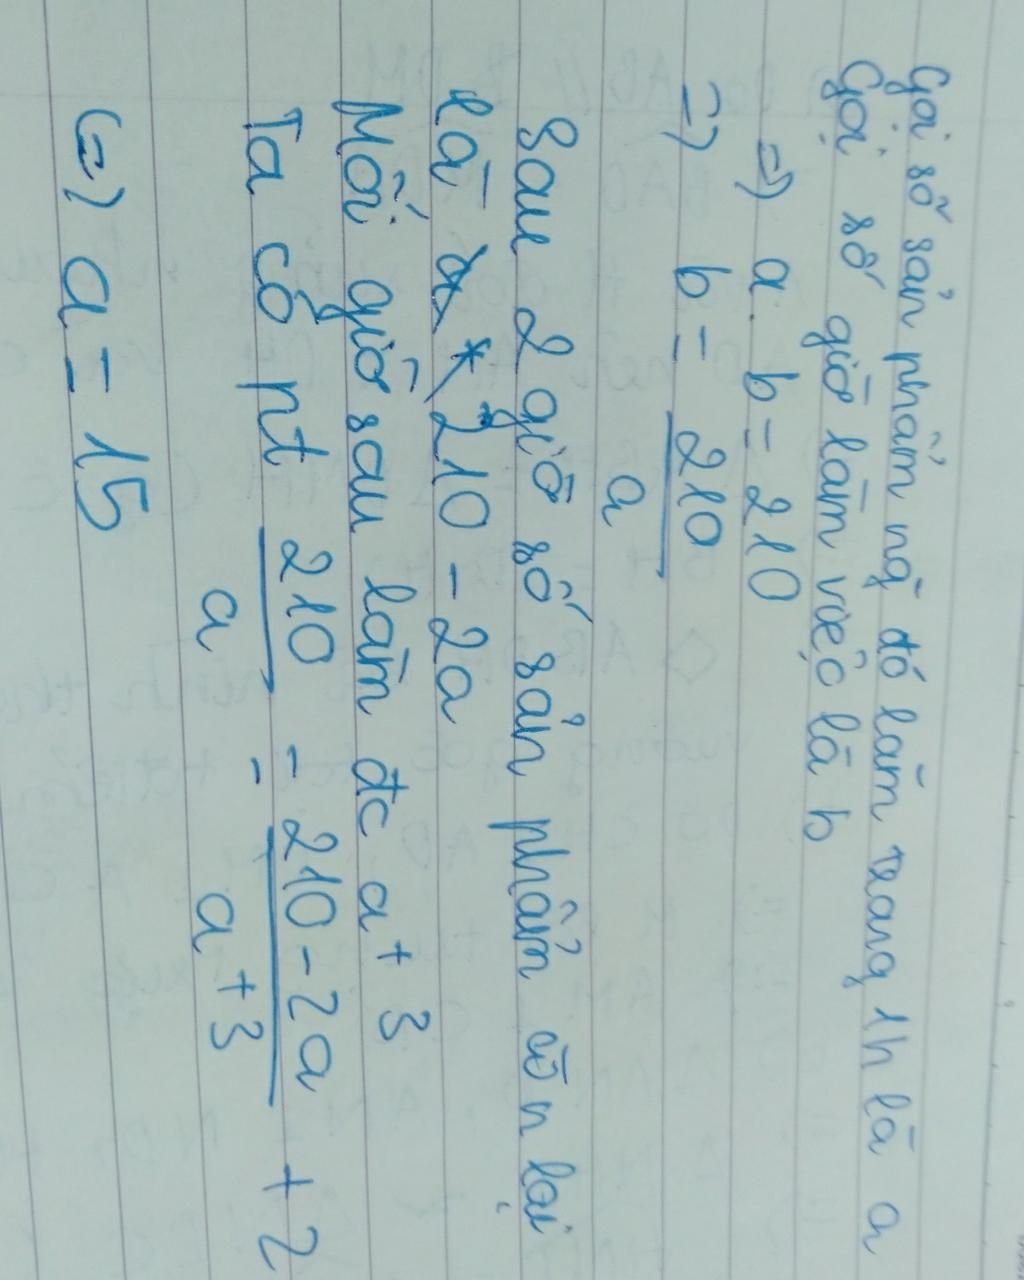 Gọi số sản phẩm ng đó làm trong 1h là a
Gọi số giờ làm việc là b
=) a. b = 210
=) b = 210/a
Sau 2 giờ số sản phẩm còn lại
là 210 - 2a
Mỗi giờ sau làm đc a + 3
Ta có pt 210/a = 210-2a/a+3 + 2
(=) a = 15